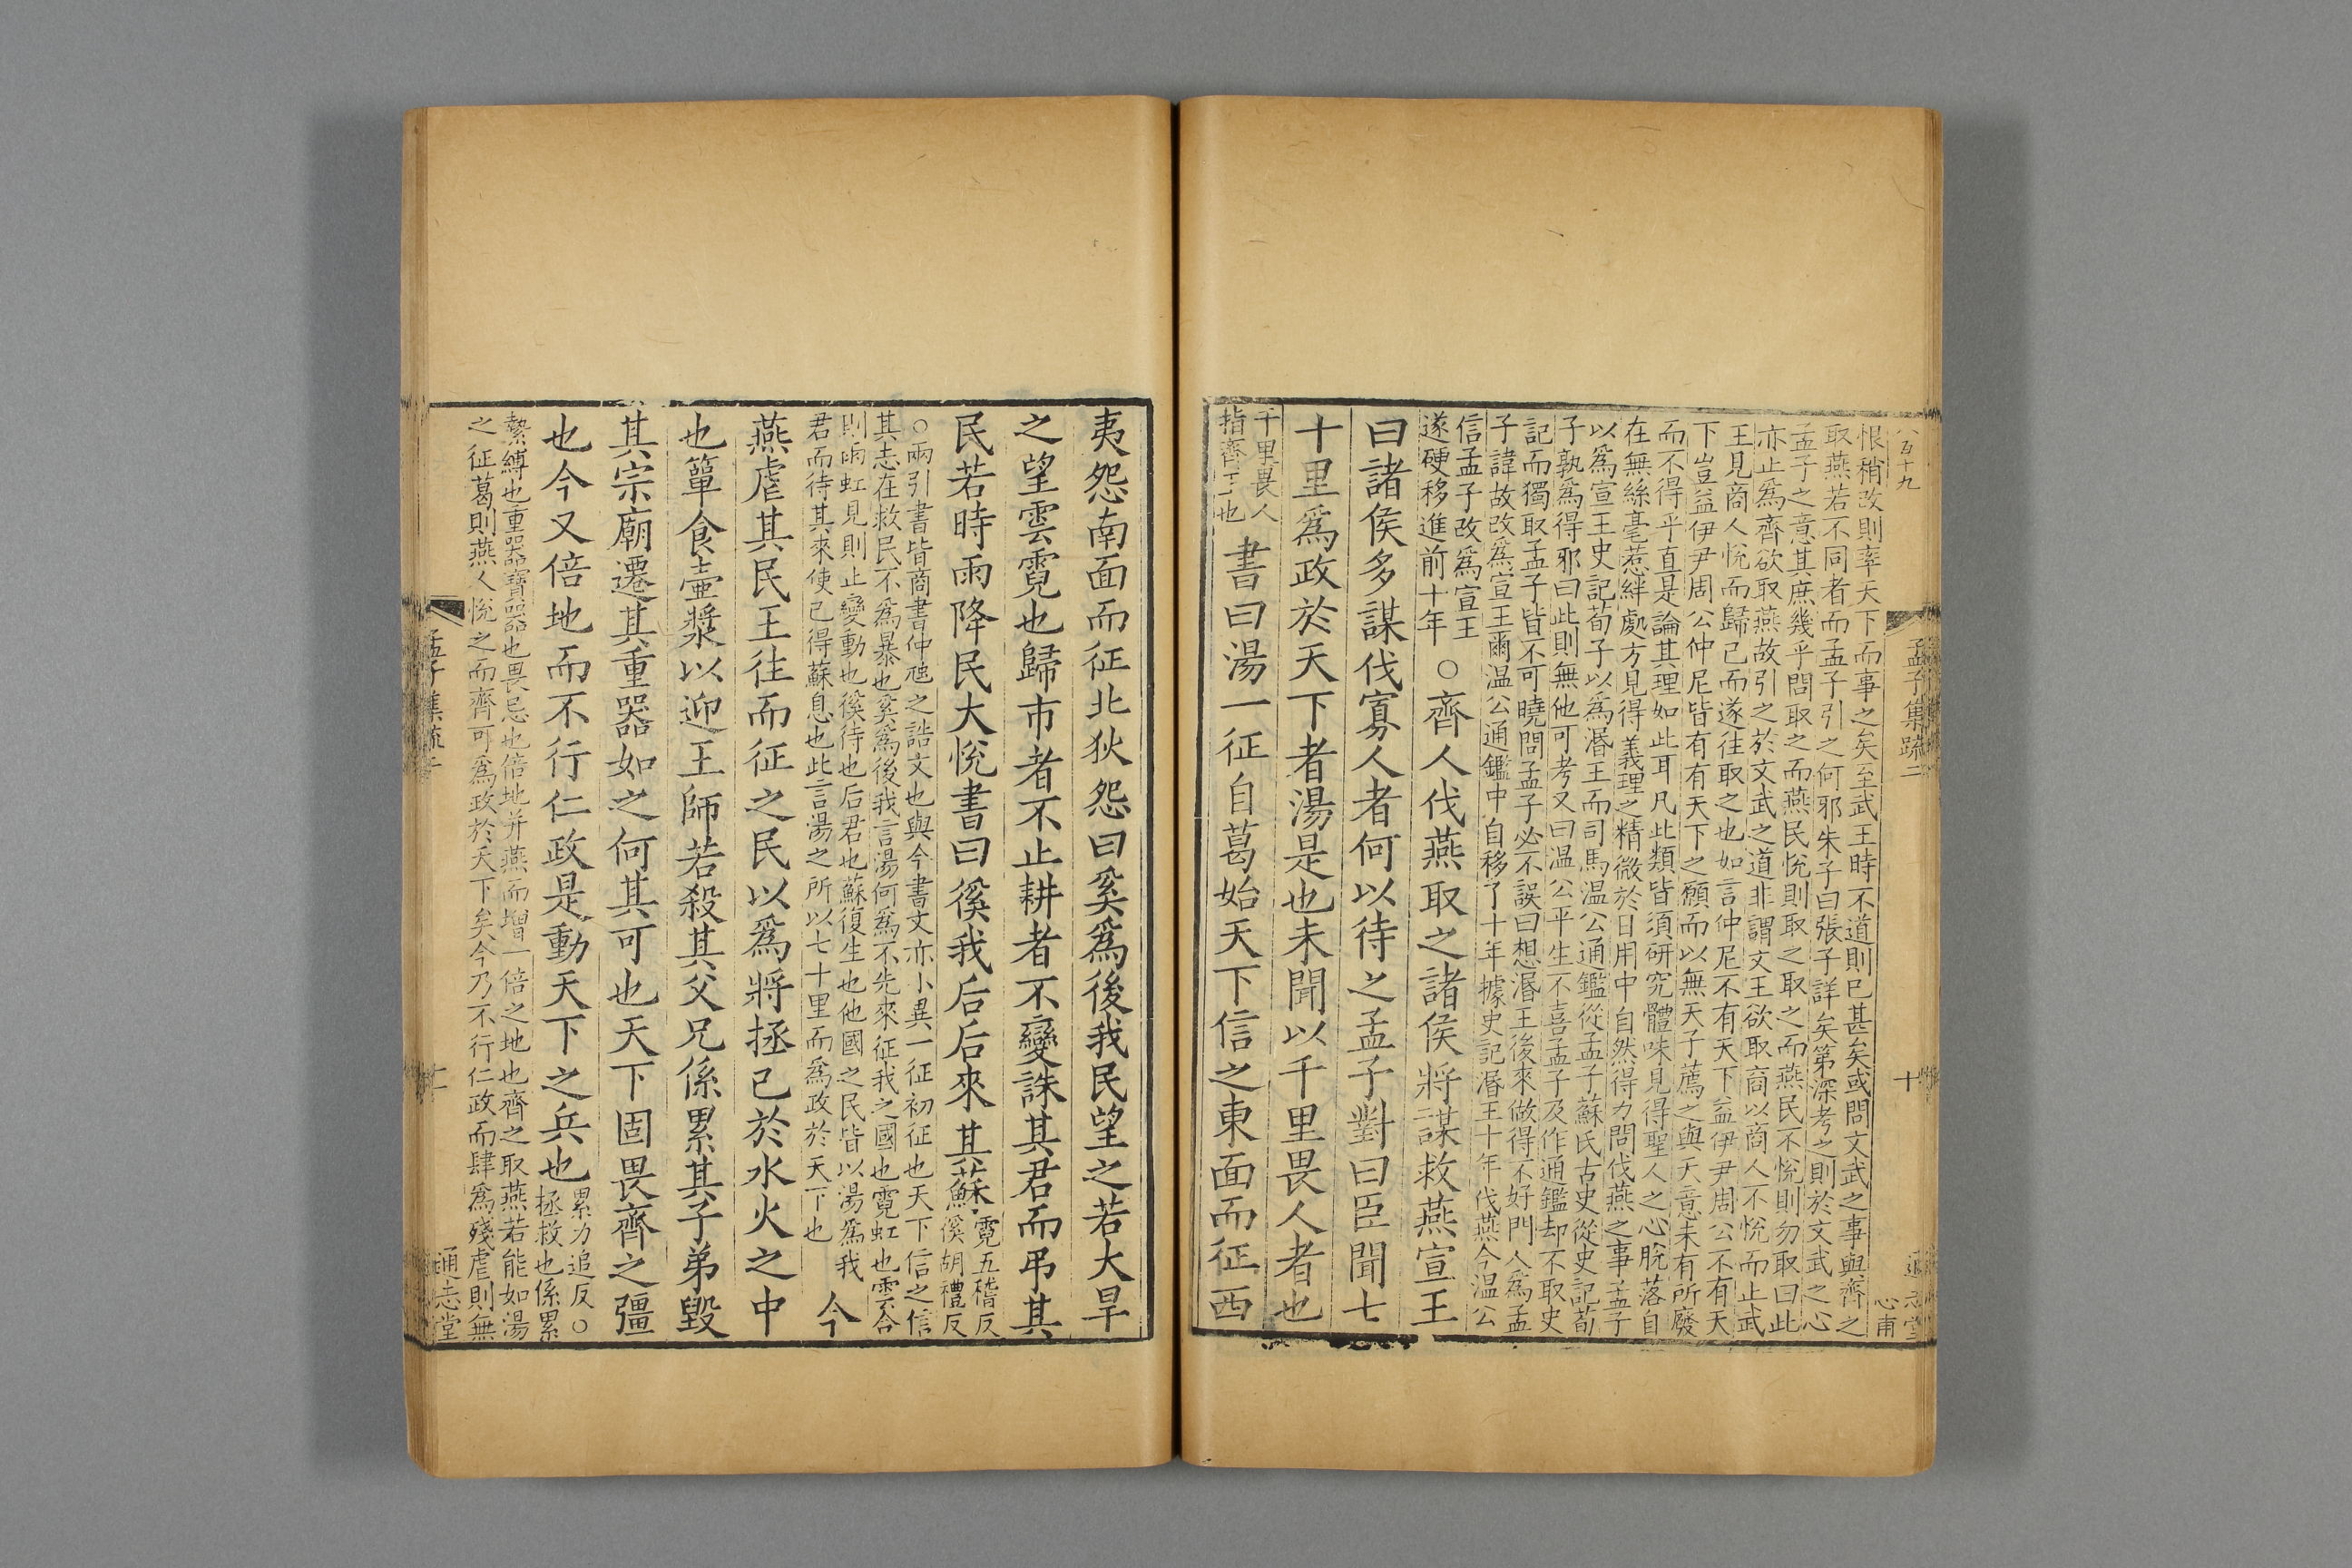 八百十九
孟子集疏二
十
通志堂
心甫
恨稍改則率天下而事之矣至武王時不道則已甚矣或問文武之事與齊之
取燕若不同者而孟子引之何邪朱子曰張子詳矣第深考之則於文武之心
孟子之意其庶幾乎問取之而燕民悅則取之取之而燕民不悅則勿取曰此
亦止爲齊欲取燕故引之於文武之道非謂文王欲取商以商人不悅而止武
王見商人悅而歸己而遂往取之也如言仲尼不有天下益伊尹周公不有天
下豈益伊尹周公仲尼皆有有天下之願而以無天子薦之與天意未有所廢
而不得乎直是論其理如此耳凡此類皆須研究體味見得聖人之心脫落自
在無絲毫惹絆處方見得義理之精微於日用中自然得力問伐燕之事孟子
以爲宣王史記荀子以爲湣王而司馬温公通鑑從孟子蘇氏古史從史記荀
子孰爲得邪曰此則無他可考又曰温公平生不喜孟子及作通鑑却不取史
記而獨取孟子皆不可曉問孟子必不誤曰想湣王後來做得不好門人爲孟
子諱故改爲宣王爾温公通鑑中自移了十年據史記湣王十年伐燕今温公
信孟子改爲宣王
遂硬移進前十年
○齊人伐燕取之諸侯將謀救燕宣王
曰諸侯多謀伐寡人者何以待之孟子對曰臣聞七
十里爲政於天下者湯是也未聞以千里畏人者也
千里畏人
指齊王也
書曰湯一征自葛始天下信之東面而征西
夷怨南面而征北狄怨曰奚爲後我民望之若大旱
之望雲霓也歸市者不止耕者不變誅其君而弔其
民若時雨降民大悅書曰徯我后后來其蘇
霓五稽反
徯胡禮反
○兩引書皆商書仲虺之誥文也與今書文亦小異一征初征也天下信之信
其志在救民不爲暴也奚爲後我言湯何爲不先來征我之國也霓虹也雲合
則雨虹見則止變動也徯待也后君也蘇復生也他國之民皆以湯爲我
君而待其來使己得蘇息也此言湯之所以七十里而爲政於天下也
今
燕虐其民王往而征之民以爲將拯己於水火之中
也簞食壺漿以迎王師若殺其父兄係累其子弟毀
其宗廟遷其重器如之何其可也天下固畏齊之彊
也今又倍地而不行仁政是動天下之兵也
累力追反○
拯救也係累
縶縛也重器寶器也畏忌也倍地并燕而增一倍之地也齊之取燕若能如湯
之征葛則燕人悅之而齊可爲政於天下矣今乃不行仁政而肆爲殘虐則無
孟子集疏二
十一
通志堂